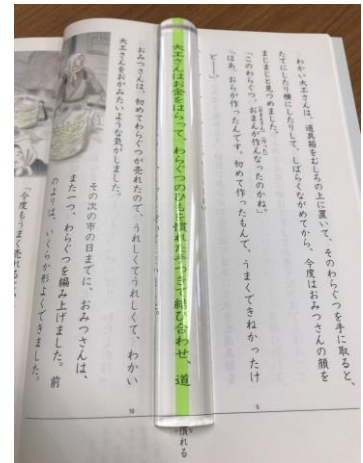 わかい大工さんは、道具箱をむしろの上に置いて、そのわらぐつを手に取ると、
たてにしたり横にしたりして、しばらくながめてから、今度はおみつさんの顔を
まじまじと見つめました。
「このわらぐつ、おまんが作んなったのかね。」
「はあ、おらが作ったんです。初めて作ったもんで、うまくできねかったけ
ど―。」
9
大工さんはお金をはらって、わらぐつのひもを慣れた手つきで結び合わせ、道
慣れる
おみつさんは、初めてわらぐつが売れたので、うれしくてうれしくて、わかい
大工さんをおがみたいような気がしました。
その次の市の日までに、おみつさんは、
また一つ、わらぐつを編み上げました。前
のよりは、いくらか形よくできました。
「今度もうまく売れると
10